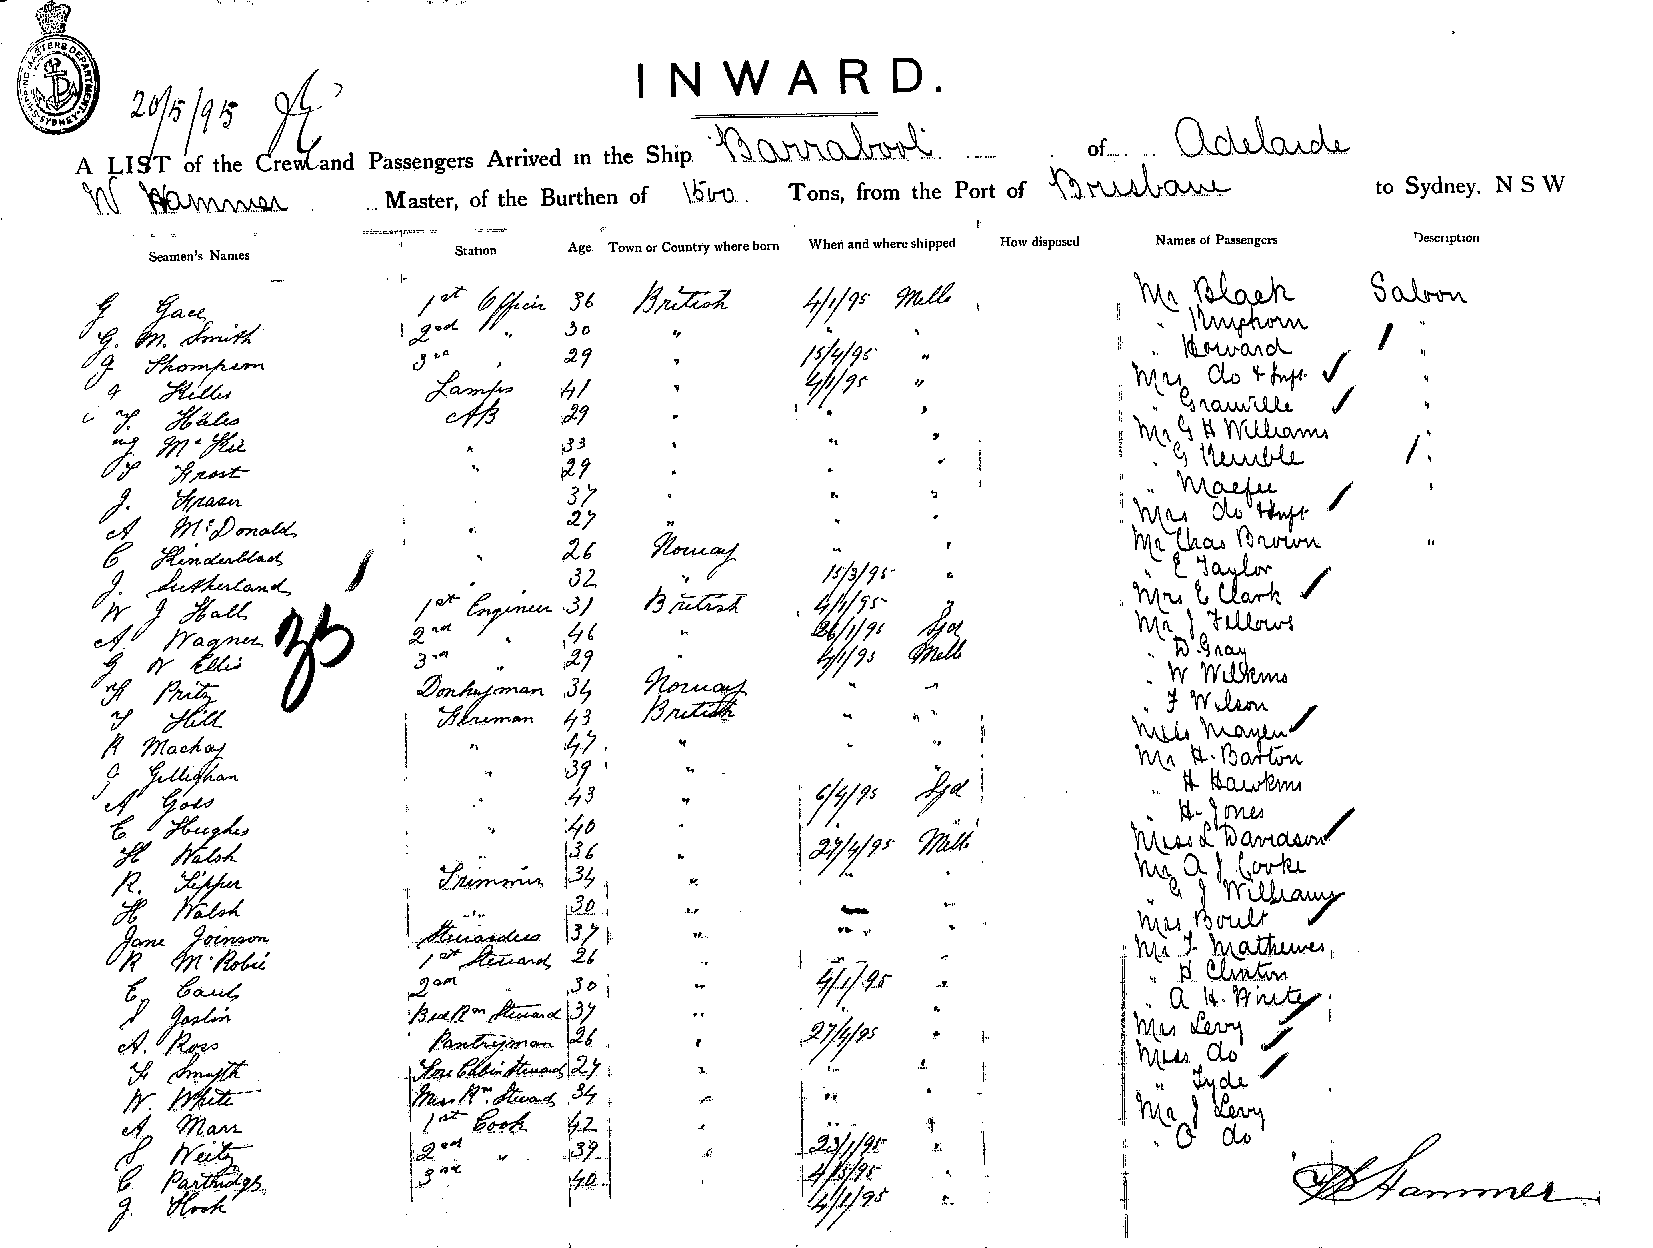 SHIPPING MASTERS DEPARTMENT SYDNEY
20/5/95
INWARD.
A LIST of the Crew and Passengers Arrived in the Ship Barrabool of Adelaide
W Hammer Master, of the Burthen of 1500 Tons, from the Port of Brisbane to Sydney. N S W
Seamen's Names Station Age Town or Country where born When and where shipped How disposed Names of Passengers Description
G Gace 1st Officer 36 British 4/1/95 Melb Mr Black Saloon
G. M. Smith 2nd " 30 " " " " Kinghorn "
J Thompson 3rd " 29 " 15/4/95 " " Howard "
Lamps 41 " 4/1/95 " Mrs do & Inft "
AB 29 " " " " Granville "
McKie " 33 " " " Mr G H Williams
T Frost " 29 " " " " G Kemble "
J. Fraser 37 " " " " Macfie "
A McDonald " 27 " " " Mrs do & Inft
C " 26 Norway " " Mr Chas Brown "
J. Sutherland 32 " 15/3/95 " " E Taylor
W J Hall 1st Engineer 31 British 4/1/95 " Mrs E Clark
A. Wagner 2nd " 46 " 26/1/95 Syd Mr J Fellows
G W Ellis 3rd " 29 " 4/1/95 Melb " D Gray
Donkeyman 34 Norway " " " W Wilkins
T Hill Fireman 43 British " " " F Wilson
R Mackay " 47 " " " Miss
Gillighan " 39 " Mr H. Barton
A Goss " 43 " 6/4/95 Syd " H Hawkins
C Hughes " 40 " " H. Jones
H Walsh " 36 " 27/4/95 Melb Miss L Davidson
R. Tipper Trimmer 34 " " " Mr A J Cooke
H Walsh " 30 " " " J Williams
Jane Joinson Stewardess 37 " " " Mrs Boult
R McRobie 1st Steward 26 " Mr F Mathewes
C 2nd 30 " 4/1/95 " " H Clinton
S Joslin Bed Rm Steward 37 " " " " A. H. White
A. Ross Pantryman 26 " 27/4/95 " Mrs Levy
F Smyth Fore Cabin Steward 27 " " " Miss do
W. White Mess Rm. Steward 34 " " " " Tyde
A Marr 1st Cook 42 " " " Mr J Levy
S Weitz 2nd " 39 " 23/1/95 " " O do
C Partridge 3rd 40 4/3/95 "
J. 4/1/95 "
35
Hammer